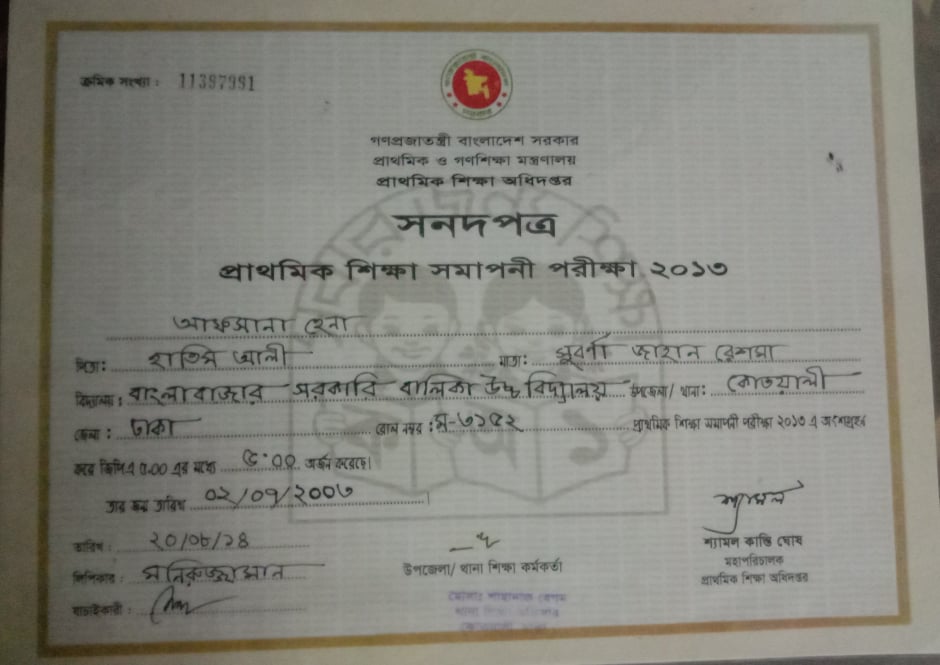 ক্রমিক সংখ্যা : 11397991
গণপ্রজাতন্ত্রী বাংলাদেশ সরকার
প্রাথমিক ও গণশিক্ষা মন্ত্রণালয়
প্রাথমিক শিক্ষা অধিদপ্তর
সনদপত্র
প্রাথমিক শিক্ষা সমাপনী পরীক্ষা ২০১৩
আফসানা হেনা
পিতা: হাতিম আলী মাতা: সুবর্ণা জাহান রেশমা
বিদ্যালয় : বাংলাবাজার সরকারি বালিকা উচ্চ বিদ্যালয় উপজেলা/ থানা: কোতয়ালী
জেলা : ঢাকা রোল নম্বর : ম-৬১৫২ প্রাথমিক শিক্ষা সমাপনী পরীক্ষা ২০১৩ এ অংশগ্রহণ
করে জিপিএ ৫.০০ এর মধ্যে ৫.০০ অর্জন করেছে।
তার জন্ম তারিখ ০২/০৭/২০০৩ ।
তারিখ : ২০/০৮/১৪
লিপিকার : মনিরুজ্জামান
যাচাইকারী :
উপজেলা/ থানা শিক্ষা কর্মকর্তা
শ্যামল কান্তি ঘোষ
মহাপরিচালক
প্রাথমিক শিক্ষা অধিদপ্তর